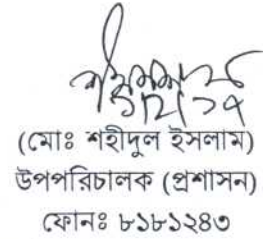 (মোঃ শহীদুল ইসলাম)
উপপরিচালক (প্রশাসন)
ফোনঃ ৮১৮১২৪৩